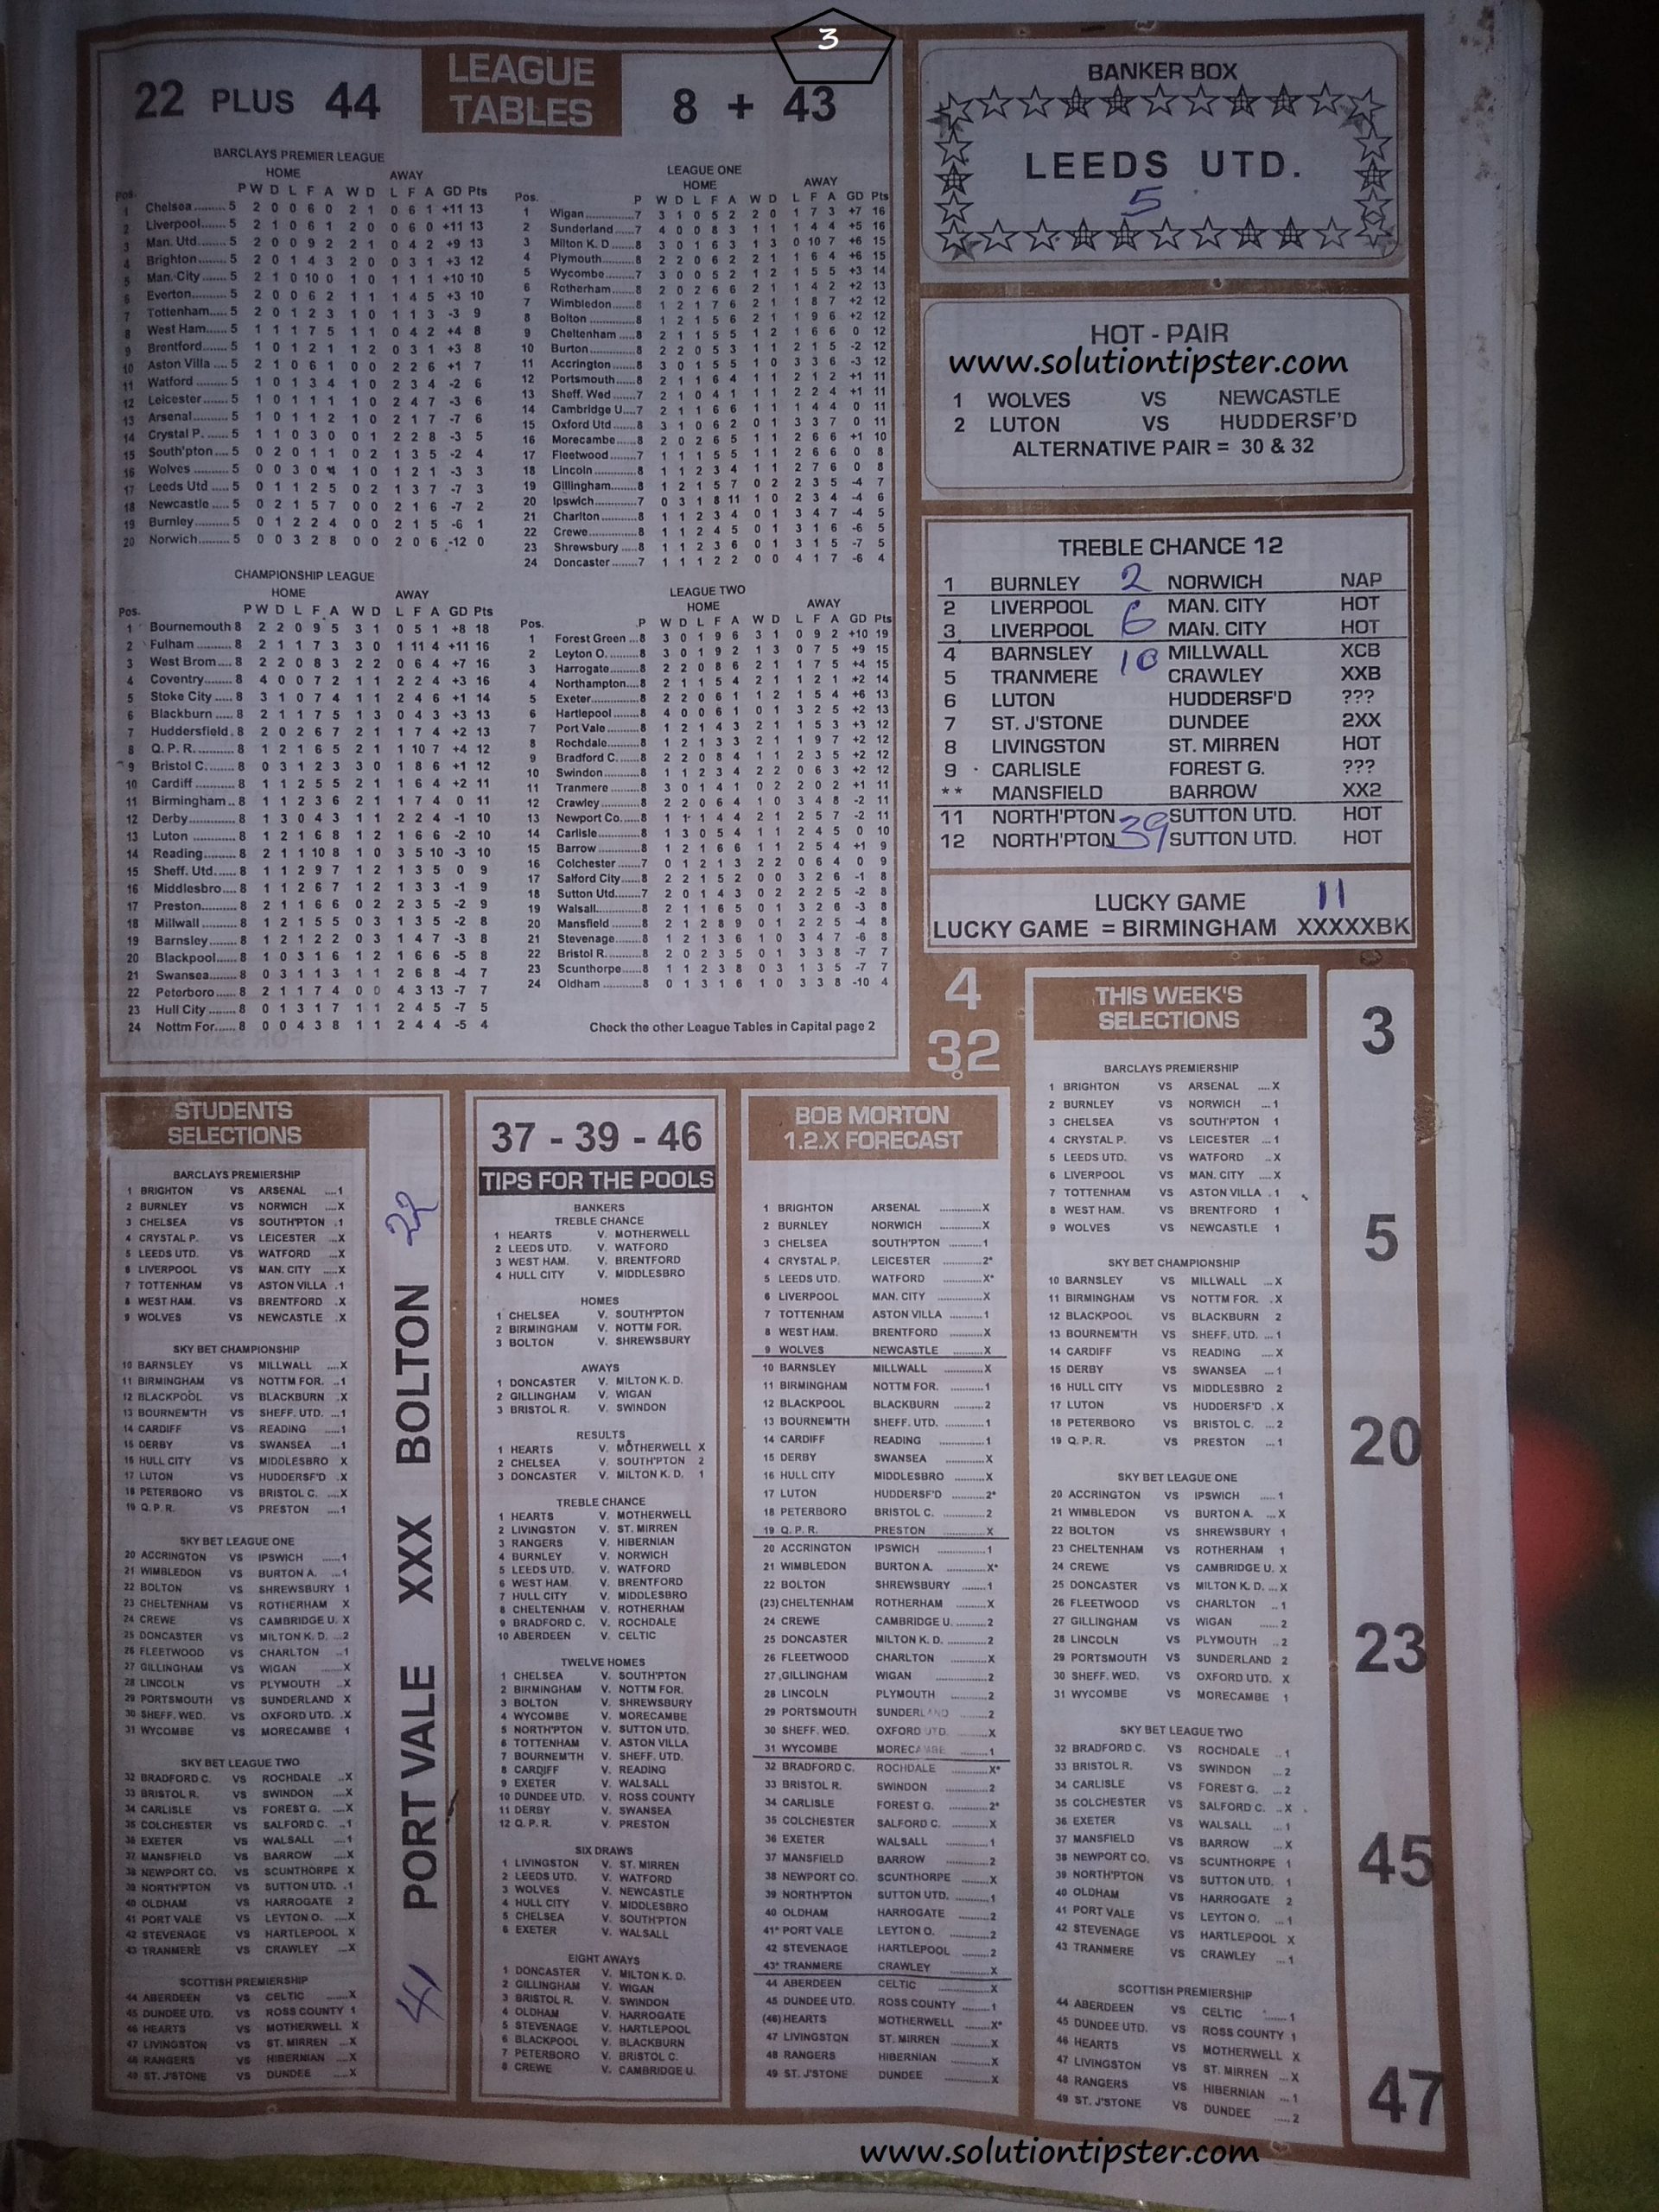 3
22 PLUS 44
LEAGUE TABLES
8 + 43
BARCLAYS PREMIER LEAGUE
HOME AWAY
Pos. P W D L F A W D L F A GD Pts
1 Chelsea......... 5 2 0 0 6 0 2 1 0 6 1 +11 13
2 Liverpool....... 5 2 1 0 6 1 2 0 0 6 0 +11 13
3 Man. Utd....... 5 2 0 0 9 2 2 1 0 4 2 +9 13
4 Brighton........ 5 2 0 1 4 3 2 0 0 3 1 +3 12
5 Man. City....... 5 2 1 0 10 0 1 0 1 1 1 +10 10
6 Everton.......... 5 2 0 0 6 2 1 1 1 4 5 +3 10
7 Tottenham..... 5 2 0 1 2 3 1 0 1 1 3 -3 9
8 West Ham..... 5 1 1 1 7 5 1 1 0 4 2 +4 8
9 Brentford....... 5 1 0 1 2 1 1 2 0 3 1 +3 8
10 Aston Villa .... 5 2 1 0 6 1 0 0 2 2 6 +1 7
11 Watford ......... 5 1 0 1 3 4 1 0 2 3 4 -2 6
12 Leicester....... 5 1 0 1 1 1 1 0 2 4 7 -3 6
13 Arsenal.......... 5 1 0 1 1 2 1 0 2 1 7 -7 6
14 Crystal P. ...... 5 1 1 0 3 0 0 1 2 2 8 -3 5
15 South'pton .... 5 0 2 0 1 1 0 2 1 3 5 -2 4
16 Wolves .......... 5 0 0 3 0 4 1 0 1 2 1 -3 3
17 Leeds Utd ..... 5 0 1 1 2 5 0 2 1 3 7 -7 3
18 Newcastle ..... 5 0 2 1 5 7 0 0 2 1 6 -7 2
19 Burnley.......... 5 0 1 2 2 4 0 0 2 1 5 -6 1
20 Norwich......... 5 0 0 3 2 8 0 0 2 0 6 -12 0
LEAGUE ONE
HOME AWAY
Pos. P W D L F A W D L F A GD Pts
1 Wigan.............. 7 3 1 0 5 2 2 0 1 7 3 +7 16
2 Sunderland....... 7 4 0 0 8 3 1 1 1 4 4 +5 16
3 Milton K. D ....... 8 3 0 1 6 3 1 3 0 10 7 +6 15
4 Plymouth.......... 8 2 2 0 6 2 2 1 1 6 4 +6 15
5 Wycombe......... 7 3 0 0 5 2 1 2 1 5 5 +3 14
6 Rotherham....... 8 2 0 2 6 6 2 1 1 4 2 +2 13
7 Wimbledon....... 8 1 2 1 7 6 2 1 1 8 7 +2 12
8 Bolton .............. 8 1 2 1 5 6 2 1 1 9 6 +2 12
9 Cheltenham ..... 8 2 1 1 5 5 1 2 1 6 6 0 12
10 Burton............. 8 2 2 0 5 3 1 1 2 1 5 -2 12
11 Accrington ....... 8 3 0 1 5 5 1 0 3 3 6 -3 12
12 Portsmouth ...... 8 2 1 1 6 4 1 1 2 1 2 +1 11
13 Sheff. Wed ...... 7 2 1 0 4 1 1 1 2 2 4 +1 11
14 Cambridge U.... 7 2 1 1 6 6 1 1 1 4 4 0 11
15 Oxford Utd ....... 8 3 1 0 6 2 0 1 3 3 7 0 11
16 Morecambe...... 8 2 0 2 6 5 1 1 2 6 6 +1 10
17 Fleetwood ........ 7 1 1 1 5 5 1 1 2 6 6 0 8
18 Lincoln ............. 8 1 1 2 3 4 1 1 2 7 6 0 8
19 Gillingham........ 8 1 2 1 5 7 0 2 2 3 5 -4 7
20 Ipswich............ 7 0 3 1 8 11 1 0 2 3 4 -4 6
21 Charlton ........... 8 1 1 2 3 4 0 1 3 4 7 -4 5
22 Crewe.............. 8 1 1 2 4 5 0 1 3 1 6 -6 5
23 Shrewsbury ..... 8 1 1 2 3 6 0 1 3 1 5 -7 5
24 Doncaster ........ 7 1 1 1 2 2 0 0 4 1 7 -6 4
CHAMPIONSHIP LEAGUE
HOME AWAY
Pos. P W D L F A W D L F A GD Pts
1 Bournemouth 8 2 2 0 9 5 3 1 0 5 1 +8 18
2 Fulham ........... 8 2 1 1 7 3 3 0 1 11 4 +11 16
3 West Brom .... 8 2 2 0 8 3 2 2 0 6 4 +7 16
4 Coventry........ 8 4 0 0 7 2 1 1 2 2 4 +3 16
5 Stoke City ...... 8 3 1 0 7 4 1 1 2 4 6 +1 14
6 Blackburn ..... 8 2 1 1 7 5 1 3 0 4 3 +3 13
7 Huddersfield . 8 2 0 2 6 7 2 1 1 7 4 +2 13
8 Q. P. R............ 8 1 2 1 6 5 2 1 1 10 7 +4 12
9 Bristol C......... 8 0 3 1 2 3 3 0 1 8 6 +1 12
10 Cardiff ........... 8 1 1 2 5 5 2 1 1 6 4 +2 11
11 Birmingham .. 8 1 1 2 3 6 2 1 1 7 4 0 11
12 Derby............. 8 1 3 0 4 3 1 1 2 2 4 -1 10
13 Luton ............. 8 1 2 1 6 8 1 2 1 6 6 -2 10
14 Reading......... 8 2 1 1 10 8 1 0 3 5 10 -3 10
15 Sheff. Utd...... 8 1 1 2 9 7 1 2 1 3 5 0 9
16 Middlesbro .... 8 1 1 2 6 7 1 2 1 3 3 -1 9
17 Preston.......... 8 2 1 1 6 6 0 2 2 3 5 -2 9
18 Millwall .......... 8 1 2 1 5 5 0 3 1 3 5 -2 8
19 Barnsley........ 8 1 2 1 2 2 0 3 1 4 7 -3 8
20 Blackpool...... 8 1 0 3 1 6 1 2 1 6 6 -5 8
21 Swansea........ 8 0 3 1 1 3 1 1 2 6 8 -4 7
22 Peterboro ...... 8 2 1 1 7 4 0 0 4 3 13 -7 7
23 Hull City ........ 8 0 1 3 1 7 1 1 2 4 5 -7 5
24 Nottm For...... 8 0 0 4 3 8 1 1 2 4 4 -5 4
LEAGUE TWO
HOME AWAY
Pos. P W D L F A W D L F A GD Pts
1 Forest Green ... 8 3 0 1 9 6 3 1 0 9 2 +10 19
2 Leyton O. ......... 8 3 0 1 9 2 1 3 0 7 5 +9 15
3 Harrogate......... 8 2 2 0 8 6 2 1 1 7 5 +4 15
4 Northampton.... 8 2 1 1 5 4 2 1 1 2 1 +2 14
5 Exeter............... 8 2 2 0 6 1 1 2 1 5 4 +6 13
6 Hartlepool ........ 8 4 0 0 6 1 0 1 3 2 5 +2 13
7 Port Vale .......... 8 1 2 1 4 3 2 1 1 5 3 +3 12
8 Rochdale.......... 8 1 2 1 3 3 2 1 1 9 7 +2 12
9 Bradford C. ...... 8 2 2 0 8 4 1 1 2 3 5 +2 12
10 Swindon .......... 8 1 1 2 3 4 2 2 0 6 3 +2 12
11 Tranmere ......... 8 3 0 1 4 1 0 2 2 0 2 +1 11
12 Crawley............ 8 2 2 0 6 4 1 0 3 4 8 -2 11
13 Newport Co...... 8 1 1 1 4 4 2 1 2 5 7 -2 11
14 Carlisle............. 8 1 3 0 5 4 1 1 2 4 5 0 10
15 Barrow............. 8 1 2 1 6 6 1 1 2 5 4 +1 9
16 Colchester ....... 7 0 1 2 1 3 2 2 0 6 4 0 9
17 Salford City...... 8 2 2 1 5 2 0 0 3 2 6 -1 8
18 Sutton Utd........ 7 2 0 1 4 3 0 2 2 2 5 -2 8
19 Walsall............. 8 2 1 1 6 5 0 1 3 2 6 -3 8
20 Mansfield ......... 8 2 1 2 8 9 0 1 2 2 5 -4 8
21 Stevenage........ 8 1 2 1 3 6 1 0 3 4 7 -6 8
22 Bristol R........... 8 2 0 2 3 5 0 1 3 3 8 -7 7
23 Scunthorpe...... 8 1 1 2 3 8 0 3 1 3 5 -7 7
24 Oldham ............ 8 0 1 3 1 6 1 0 3 3 8 -10 4
Check the other League Tables in Capital page 2
BANKER BOX
LEEDS UTD.
5
HOT - PAIR
www.solutiontipster.com
1 WOLVES VS NEWCASTLE
2 LUTON VS HUDDERSF'D
ALTERNATIVE PAIR = 30 & 32
TREBLE CHANCE 12
1 BURNLEY 2 NORWICH NAP
2 LIVERPOOL MAN. CITY HOT
3 LIVERPOOL 6 MAN. CITY HOT
4 BARNSLEY 10 MILLWALL XCB
5 TRANMERE CRAWLEY XXB
6 LUTON HUDDERSF'D ???
7 ST. J'STONE DUNDEE 2XX
8 LIVINGSTON ST. MIRREN HOT
9 CARLISLE FOREST G. ???
** MANSFIELD BARROW XX2
11 NORTH'PTON SUTTON UTD. HOT
12 NORTH'PTON 39 SUTTON UTD. HOT
LUCKY GAME 11
LUCKY GAME = BIRMINGHAM XXXXXBK
4
32
STUDENTS SELECTIONS
BARCLAYS PREMIERSHIP
1 BRIGHTON VS ARSENAL ....1
2 BURNLEY VS NORWICH ...X
3 CHELSEA VS SOUTH'PTON .1
4 CRYSTAL P. VS LEICESTER ...X
5 LEEDS UTD. VS WATFORD ...X
6 LIVERPOOL VS MAN. CITY ....X
7 TOTTENHAM VS ASTON VILLA .1
8 WEST HAM. VS BRENTFORD .X
9 WOLVES VS NEWCASTLE .X
SKY BET CHAMPIONSHIP
10 BARNSLEY VS MILLWALL ....X
11 BIRMINGHAM VS NOTTM FOR. ..1
12 BLACKPOOL VS BLACKBURN .X
13 BOURNEM'TH VS SHEFF. UTD. ...1
14 CARDIFF VS READING .....1
15 DERBY VS SWANSEA ...1
16 HULL CITY VS MIDDLESBRO X
17 LUTON VS HUDDERSF'D .X
18 PETERBORO VS BRISTOL C. ...X
19 Q. P. R. VS PRESTON ....1
SKY BET LEAGUE ONE
20 ACCRINGTON VS IPSWICH ......1
21 WIMBLEDON VS BURTON A. ...1
22 BOLTON VS SHREWSBURY 1
23 CHELTENHAM VS ROTHERHAM X
24 CREWE VS CAMBRIDGE U. X
25 DONCASTER VS MILTON K. D. ...2
26 FLEETWOOD VS CHARLTON ...1
27 GILLINGHAM VS WIGAN ......X
28 LINCOLN VS PLYMOUTH ...X
29 PORTSMOUTH VS SUNDERLAND X
30 SHEFF. WED. VS OXFORD UTD. .X
31 WYCOMBE VS MORECAMBE 1
SKY BET LEAGUE TWO
32 BRADFORD C. VS ROCHDALE ..X
33 BRISTOL R. VS SWINDON ....X
34 CARLISLE VS FOREST G. ....X
35 COLCHESTER VS SALFORD C. ..1
36 EXETER VS WALSALL .....1
37 MANSFIELD VS BARROW .....X
38 NEWPORT CO. VS SCUNTHORPE X
39 NORTH'PTON VS SUTTON UTD. .1
40 OLDHAM VS HARROGATE 2
41 PORT VALE VS LEYTON O. ....X
42 STEVENAGE VS HARTLEPOOL X
43 TRANMERE VS CRAWLEY ...X
SCOTTISH PREMIERSHIP
44 ABERDEEN VS CELTIC ......X
45 DUNDEE UTD. VS ROSS COUNTY 1
46 HEARTS VS MOTHERWELL X
47 LIVINGSTON VS ST. MIRREN ...X
48 RANGERS VS HIBERNIAN ...X
49 ST. J'STONE VS DUNDEE ....X
41 PORT VALE XXX BOLTON 22
37 - 39 - 46
TIPS FOR THE POOLS
BANKERS
TREBLE CHANCE
1 HEARTS V. MOTHERWELL
2 LEEDS UTD. V. WATFORD
3 WEST HAM. V. BRENTFORD
4 HULL CITY V. MIDDLESBRO
HOMES
1 CHELSEA V. SOUTH'PTON
2 BIRMINGHAM V. NOTTM FOR.
3 BOLTON V. SHREWSBURY
AWAYS
1 DONCASTER V. MILTON K. D.
2 GILLINGHAM V. WIGAN
3 BRISTOL R. V. SWINDON
RESULTS
1 HEARTS V. MOTHERWELL X
2 CHELSEA V. SOUTH'PTON 2
3 DONCASTER V. MILTON K. D. 1
TREBLE CHANCE
1 HEARTS V. MOTHERWELL
2 LIVINGSTON V. ST. MIRREN
3 RANGERS V. HIBERNIAN
4 BURNLEY V. NORWICH
5 LEEDS UTD. V. WATFORD
6 WEST HAM. V. BRENTFORD
7 HULL CITY V. MIDDLESBRO
8 CHELTENHAM V. ROTHERHAM
9 BRADFORD C. V. ROCHDALE
10 ABERDEEN V. CELTIC
TWELVE HOMES
1 CHELSEA V. SOUTH'PTON
2 BIRMINGHAM V. NOTTM FOR.
3 BOLTON V. SHREWSBURY
4 WYCOMBE V. MORECAMBE
5 NORTH'PTON V. SUTTON UTD.
6 TOTTENHAM V. ASTON VILLA
7 BOURNEM'TH V. SHEFF. UTD.
8 CARDIFF V. READING
9 EXETER V. WALSALL
10 DUNDEE UTD. V. ROSS COUNTY
11 DERBY V. SWANSEA
12 Q. P. R. V. PRESTON
SIX DRAWS
1 LIVINGSTON V. ST. MIRREN
2 LEEDS UTD. V. WATFORD
3 WOLVES V. NEWCASTLE
4 HULL CITY V. MIDDLESBRO
5 CHELSEA V. SOUTH'PTON
6 EXETER V. WALSALL
EIGHT AWAYS
1 DONCASTER V. MILTON K. D.
2 GILLINGHAM V. WIGAN
3 BRISTOL R. V. SWINDON
4 OLDHAM V. HARROGATE
5 STEVENAGE V. HARTLEPOOL
6 BLACKPOOL V. BLACKBURN
7 PETERBORO V. BRISTOL C.
8 CREWE V. CAMBRIDGE U.
BOB MORTON
1.2.X FORECAST
1 BRIGHTON ARSENAL ............X
2 BURNLEY NORWICH ............X
3 CHELSEA SOUTH'PTON .........1
4 CRYSTAL P. LEICESTER ..........2*
5 LEEDS UTD. WATFORD ..........X*
6 LIVERPOOL MAN. CITY ..........X
7 TOTTENHAM ASTON VILLA ........1
8 WEST HAM. BRENTFORD .........X
9 WOLVES NEWCASTLE .........X
10 BARNSLEY MILLWALL ...........X
11 BIRMINGHAM NOTTM FOR. .........1
12 BLACKPOOL BLACKBURN .........2
13 BOURNEM'TH SHEFF. UTD. ........1
14 CARDIFF READING ...........1
15 DERBY SWANSEA ..........X
16 HULL CITY MIDDLESBRO ........X
17 LUTON HUDDERSF'D .........2*
18 PETERBORO BRISTOL C. ..........2
19 Q. P. R. PRESTON ..........X
20 ACCRINGTON IPSWICH ...........1
21 WIMBLEDON BURTON A. .........X*
22 BOLTON SHREWSBURY ........1
(23) CHELTENHAM ROTHERHAM ........X
24 CREWE CAMBRIDGE U. ........2
25 DONCASTER MILTON K. D. .........2
26 FLEETWOOD CHARLTON ..........X
27 GILLINGHAM WIGAN ...........2
28 LINCOLN PLYMOUTH ..........2
29 PORTSMOUTH SUNDERLAND ......2
30 SHEFF. WED. OXFORD UTD. .......X
31 WYCOMBE MORECAMBE .........1
32 BRADFORD C. ROCHDALE .........X*
33 BRISTOL R. SWINDON ..........2
34 CARLISLE FOREST G. .........2*
35 COLCHESTER SALFORD C. ........X
36 EXETER WALSALL ..........1
37 MANSFIELD BARROW ..........2
38 NEWPORT CO. SCUNTHORPE ........X
39 NORTH'PTON SUTTON UTD. ........1
40 OLDHAM HARROGATE ........2
41* PORT VALE LEYTON O. ........2
42 STEVENAGE HARTLEPOOL ........2
43* TRANMERE CRAWLEY ........X
44 ABERDEEN CELTIC ..........X
45 DUNDEE UTD. ROSS COUNTY .......1
(46) HEARTS MOTHERWELL .......X*
47 LIVINGSTON ST. MIRREN ........X
48 RANGERS HIBERNIAN ........X
49 ST. J'STONE DUNDEE ..........X
THIS WEEK'S SELECTIONS
BARCLAYS PREMIERSHIP
1 BRIGHTON VS ARSENAL ....X
2 BURNLEY VS NORWICH ...1
3 CHELSEA VS SOUTH'PTON 1
4 CRYSTAL P. VS LEICESTER ...1
5 LEEDS UTD. VS WATFORD ...X
6 LIVERPOOL VS MAN. CITY ....X
7 TOTTENHAM VS ASTON VILLA . 1
8 WEST HAM. VS BRENTFORD 1
9 WOLVES VS NEWCASTLE 1
SKY BET CHAMPIONSHIP
10 BARNSLEY VS MILLWALL ...X
11 BIRMINGHAM VS NOTTM FOR. .X
12 BLACKPOOL VS BLACKBURN 2
13 BOURNEM'TH VS SHEFF. UTD. ...1
14 CARDIFF VS READING ....X
15 DERBY VS SWANSEA ...1
16 HULL CITY VS MIDDLESBRO 2
17 LUTON VS HUDDERSF'D .X
18 PETERBORO VS BRISTOL C. ...2
19 Q. P. R. VS PRESTON ....1
SKY BET LEAGUE ONE
20 ACCRINGTON VS IPSWICH .....1
21 WIMBLEDON VS BURTON A. ...X
22 BOLTON VS SHREWSBURY 1
23 CHELTENHAM VS ROTHERHAM 1
24 CREWE VS CAMBRIDGE U. X
25 DONCASTER VS MILTON K. D. ...X
26 FLEETWOOD VS CHARLTON ...1
27 GILLINGHAM VS WIGAN ......2
28 LINCOLN VS PLYMOUTH ..2
29 PORTSMOUTH VS SUNDERLAND 2
30 SHEFF. WED. VS OXFORD UTD. X
31 WYCOMBE VS MORECAMBE 1
SKY BET LEAGUE TWO
32 BRADFORD C. VS ROCHDALE ..1
33 BRISTOL R. VS SWINDON ...2
34 CARLISLE VS FOREST G. ...2
35 COLCHESTER VS SALFORD C. ..X
36 EXETER VS WALSALL ....1
37 MANSFIELD VS BARROW ....X
38 NEWPORT CO. VS SCUNTHORPE 1
39 NORTH'PTON VS SUTTON UTD. 1
40 OLDHAM VS HARROGATE 2
41 PORT VALE VS LEYTON O. ...1
42 STEVENAGE VS HARTLEPOOL X
43 TRANMERE VS CRAWLEY ...1
SCOTTISH PREMIERSHIP
44 ABERDEEN VS CELTIC ......1
45 DUNDEE UTD. VS ROSS COUNTY 1
46 HEARTS VS MOTHERWELL X
47 LIVINGSTON VS ST. MIRREN ...X
48 RANGERS VS HIBERNIAN ...1
49 ST. J'STONE VS DUNDEE .....2
3
5
20
23
45
47
www.solutiontipster.com